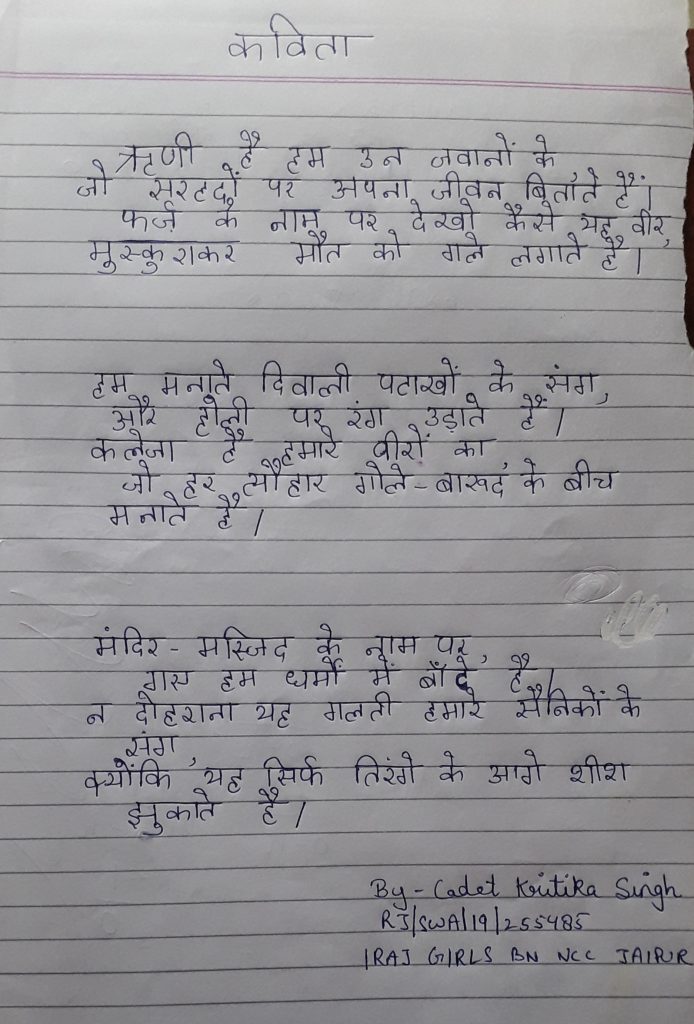 कविता
ऋणी है हम उन जवानों के,
जो सरहदों पर अपना जीवन बिताते हैं।
फर्ज के नाम पर देखो कैसे यह वीर,
मुस्कुराकर मौत को गले लगाते है।
हम मनाते दिवाली पटाखों के संग,
और होली पर रंग उड़ाते हैं।
कलेजा है हमारे वीरों का,
जो हर त्यौहार गोले-बारूद के बीच
मनाते है।
मंदिर-मस्जिद के नाम पर,
गए हम धर्मों में बाँटे है।
न दोहराना यह गलती हमारे सैनिकों के
संग,
क्योंकि यह सिर्फ तिरंगे के आगे शीश
झुकाते है।
By- Cadet Kritika Singh
RJ/SWA/19/255485
1RAJ GIRLS BN NCC JAIPUR